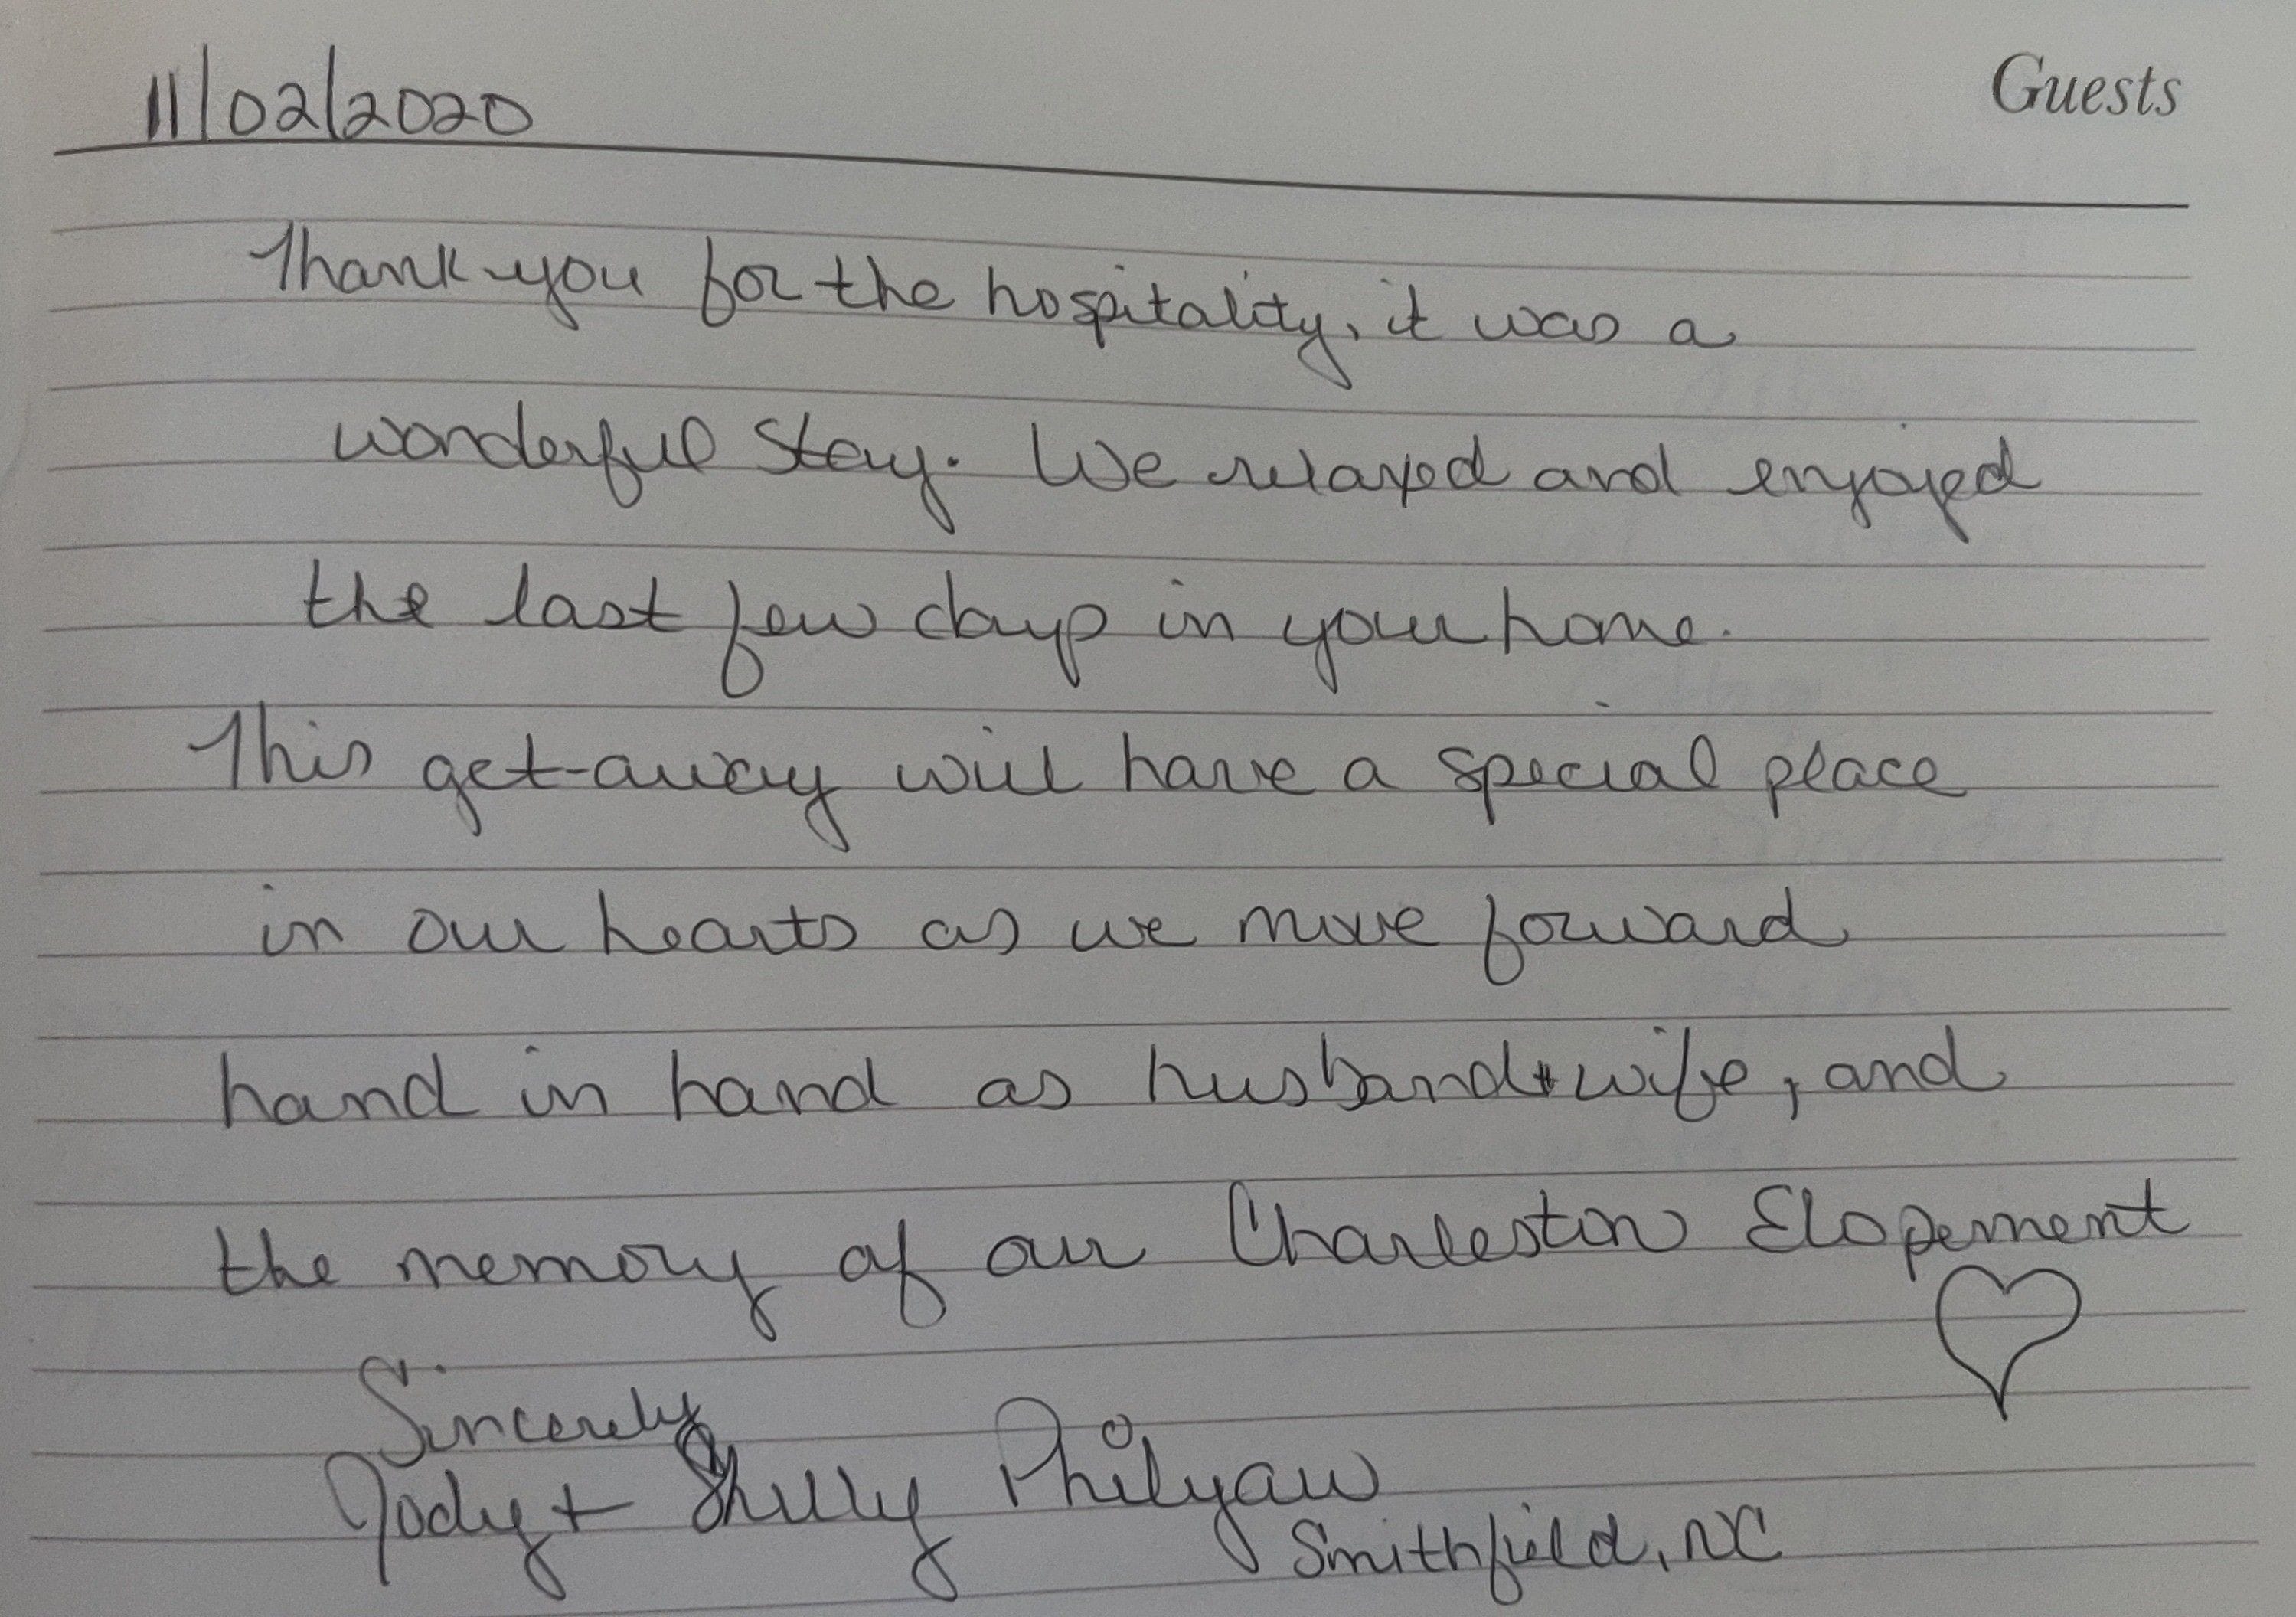 11/02/2020 Guests
Thank you for the hospitality, it was a
wonderful stay. We relaxed and enjoyed
the last few days in your home.
This get-away will have a special place
in our hearts as we move forward
hand in hand as husband + wife, and
the memory of our Charleston Elopement
♡
Sincerely
Jody + Shelly Philyaw
Smithfield, NC